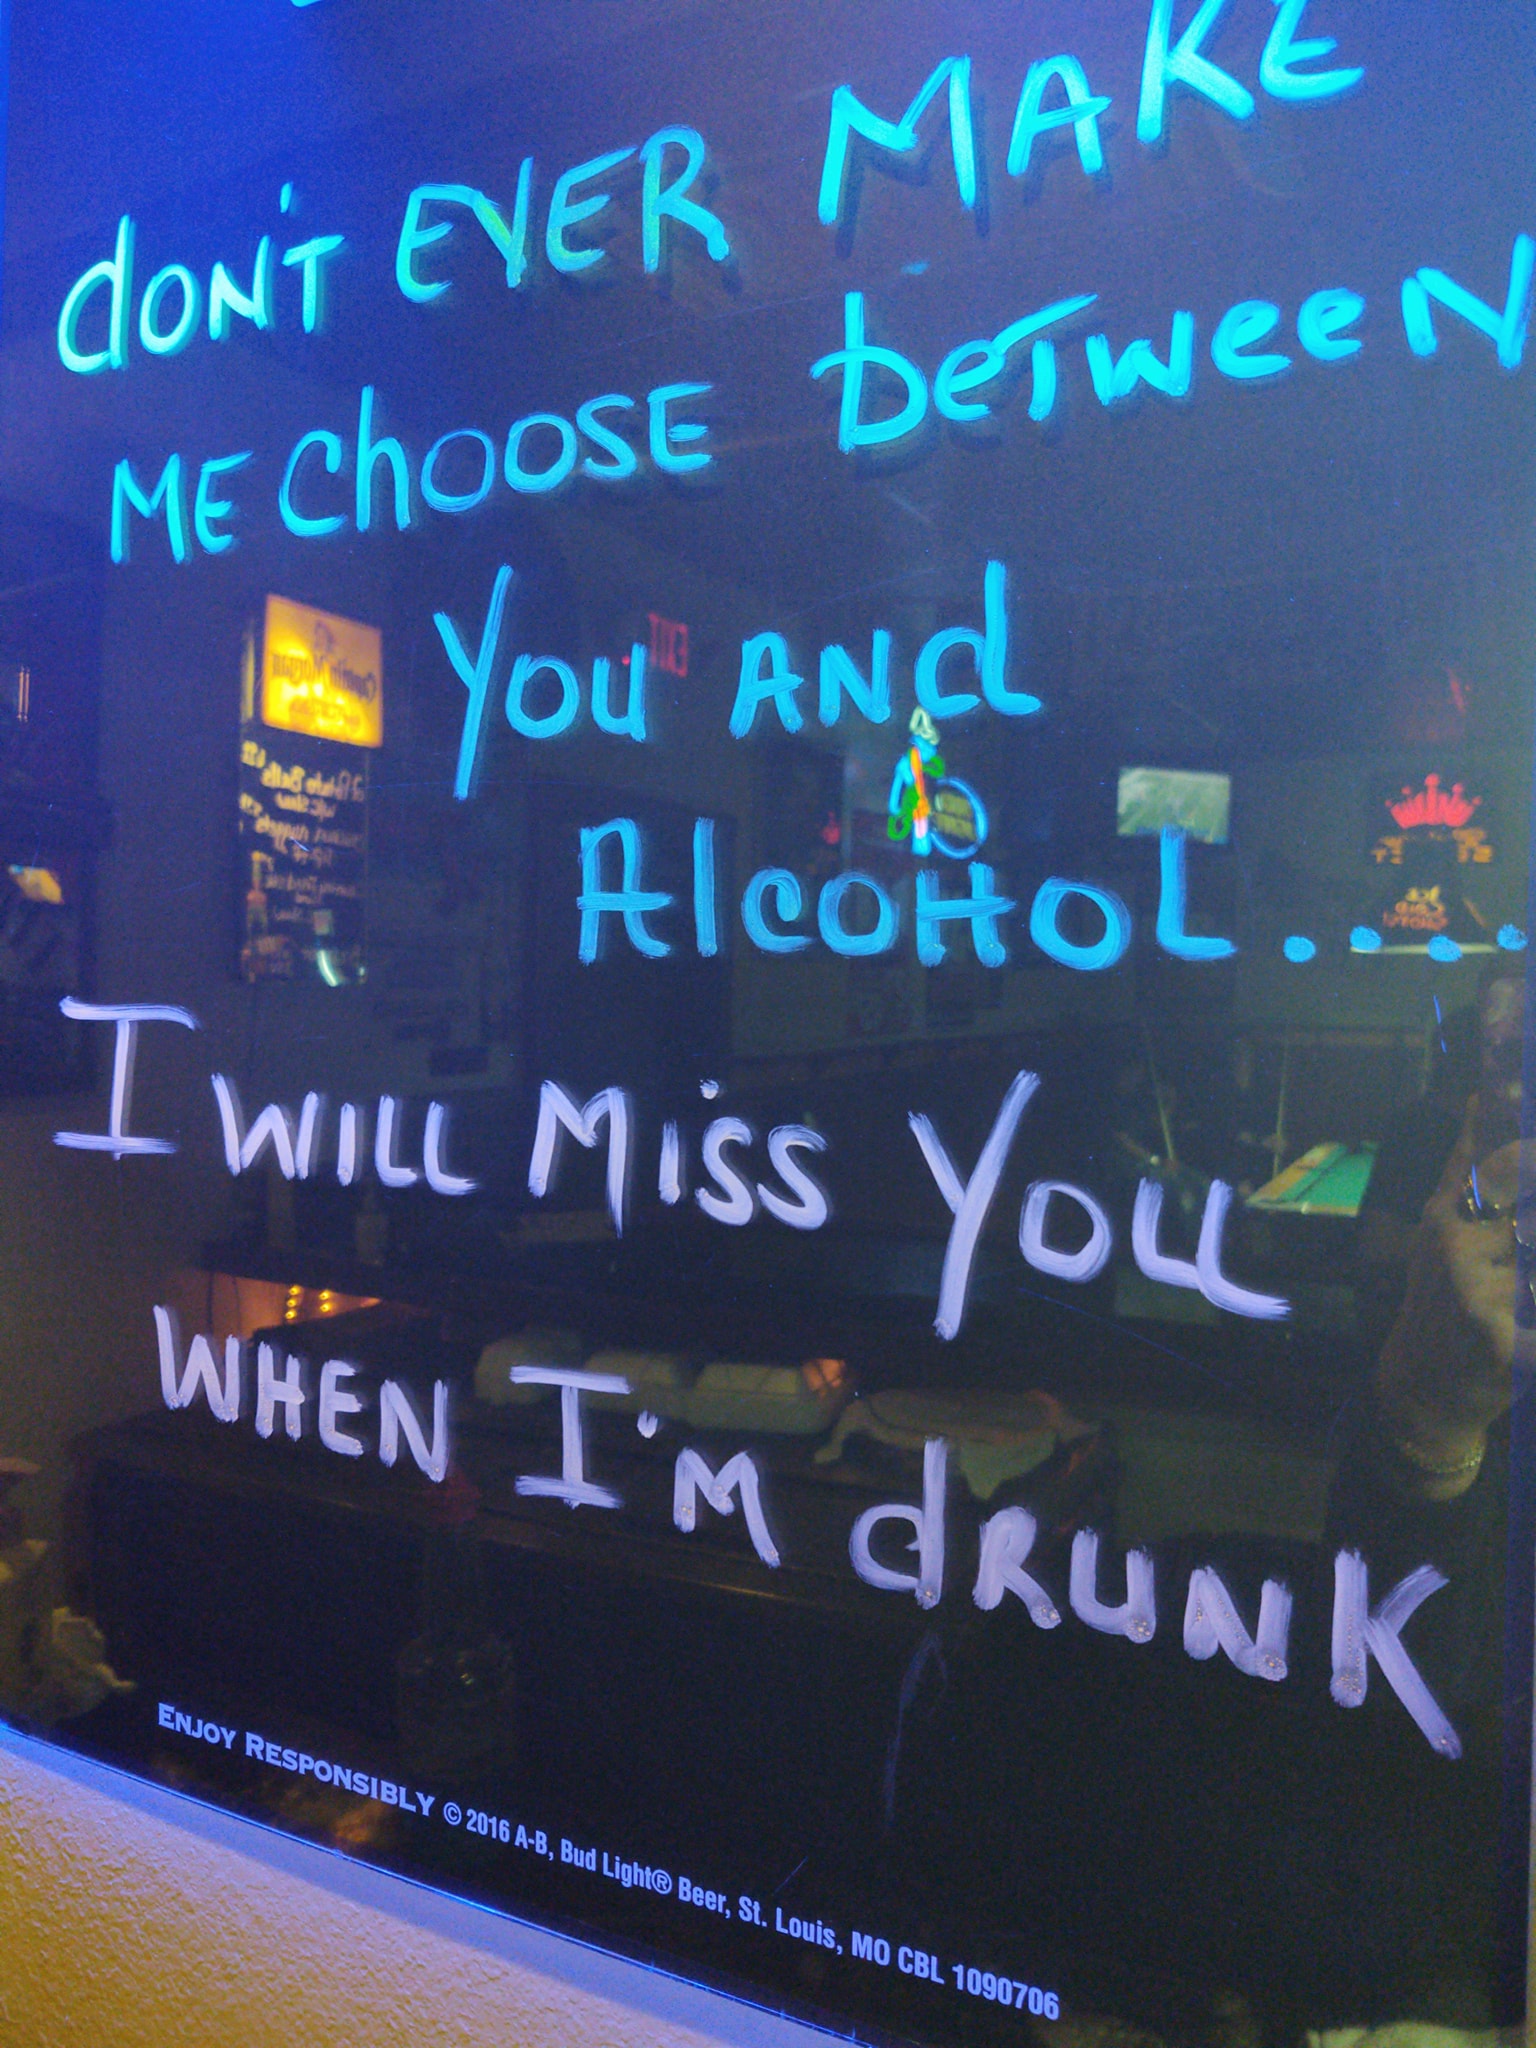 dON'T EVER MAKE
ME ChOOSE beTweeN
You ANd
AlCOHOL....
I WILL Miss You
WHEN I'M dRUNK
ENJOY RESPONSIBLY © 2016 A-B, Bud Light® Beer, St. Louis, MO CBL 1090706
Captain Morgan
EXIT